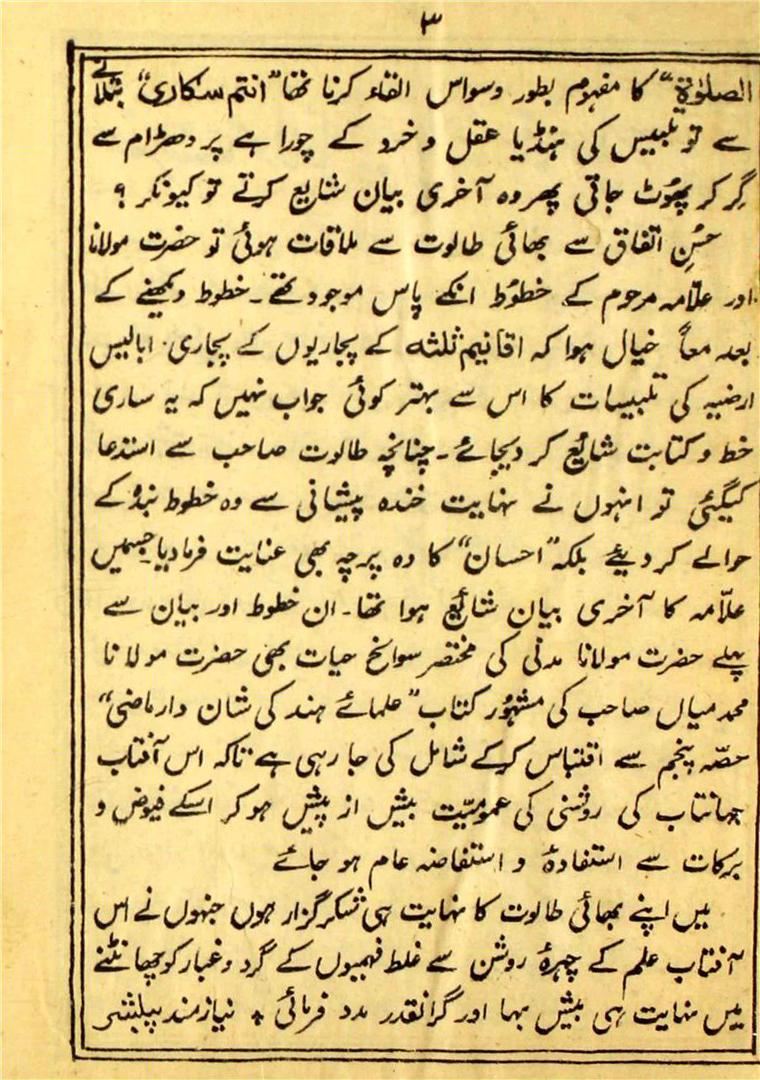 ۳
الصلوٰۃ" کا مفہوم بطور وسواس القاء کرنا تھا "انتم سکاریٰ" بتلانے
سے تو تلبیس کی ہنڈیا عقل و خرد کے چوراہے پر دھڑام سے
گِر کر پھُوٹ جاتی پھر وہ آخری بیان شایع کرتے تو کیونکر ؟
حُسنِ اتفاق سے بھائی طالوت سے ملاقات ہوئی تو حضرت مولانا
اور علّامہ مرحوم کے خطوُط انکے پاس موجود تھے۔ خطوط دیکھنے کے
بعد معاً خیال ہوا کہ اقانیم ثلثہ کے پجاریوں کے پجاری۔ ابالیس
ارضیہ کی تلبیسات کا اس سے بہتر کوئی جواب نہیں کہ یہ ساری
خط و کتابت شایع کر دیجائے۔ چنانچہ طالوت صاحب سے استدعا
کیگئی تو انہوں نے نہایت خندہ پیشانی سے وہ خطوط بندہ کے
حوالے کر دیئے بلکہ "احسان" کا وہ پرچہ بھی عنایت فرمادیا جسمیں
علّامہ کا آخری بیان شائع ہوا تھا۔ ان خطوط اور بیان سے
پہلے حضرت مولانا مدنی کی مختصر سوانح حیات بھی حضرت مولانا
محمد میاں صاحب کی مشہُور کتاب "علمائے ہند کی شان دار ماضی"
حصّہ پنجم سے اقتباس کرکے شامل کی جا رہی ہے تاکہ اس آفتاب
جہانتاب کی روشنی کی عمومیّت بیش از پیش ہو کر اسکے فیوض و
برکات سے استفادۂ و استفاضہ عام ہو جائے
میں اپنے بھائی طالوت کا نہایت ہی شکر گزار ہوں جنہوں نے اس
آفتاب علم کے چہرۂ روشن سے غلط فہمیوں کے گرد و غبار کو چھانٹنے
میں نہایت ہی بیش بہا اور گرانقدر مدد فرمائی ٭ نیازمند پبلشر